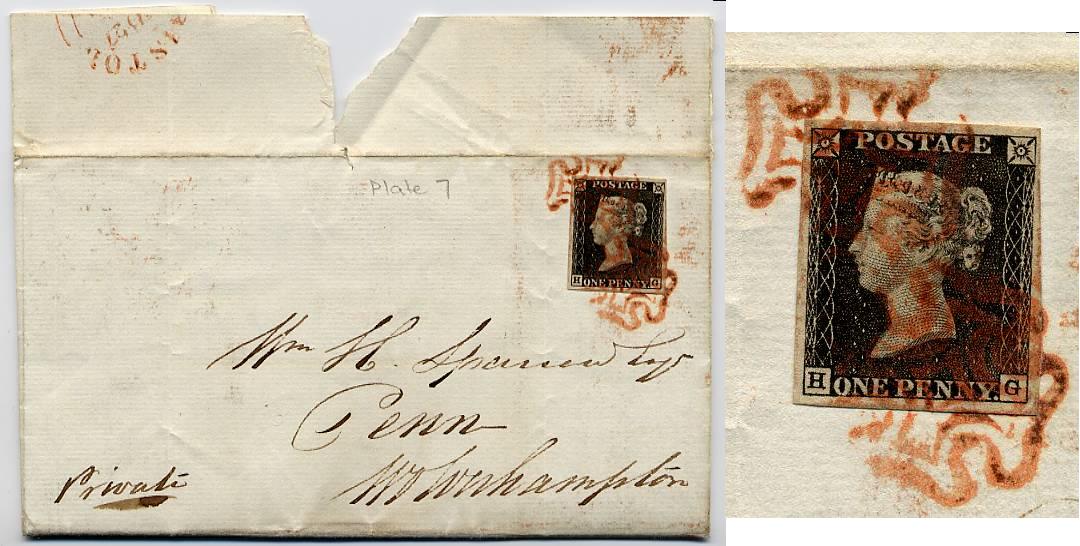 Plate 7
POSTAGE
H ONE PENNY. G
Wm H. Sparrow Esqr
Penn
Wolverhampton
Private
POSTAGE
H ONE PENNY. G